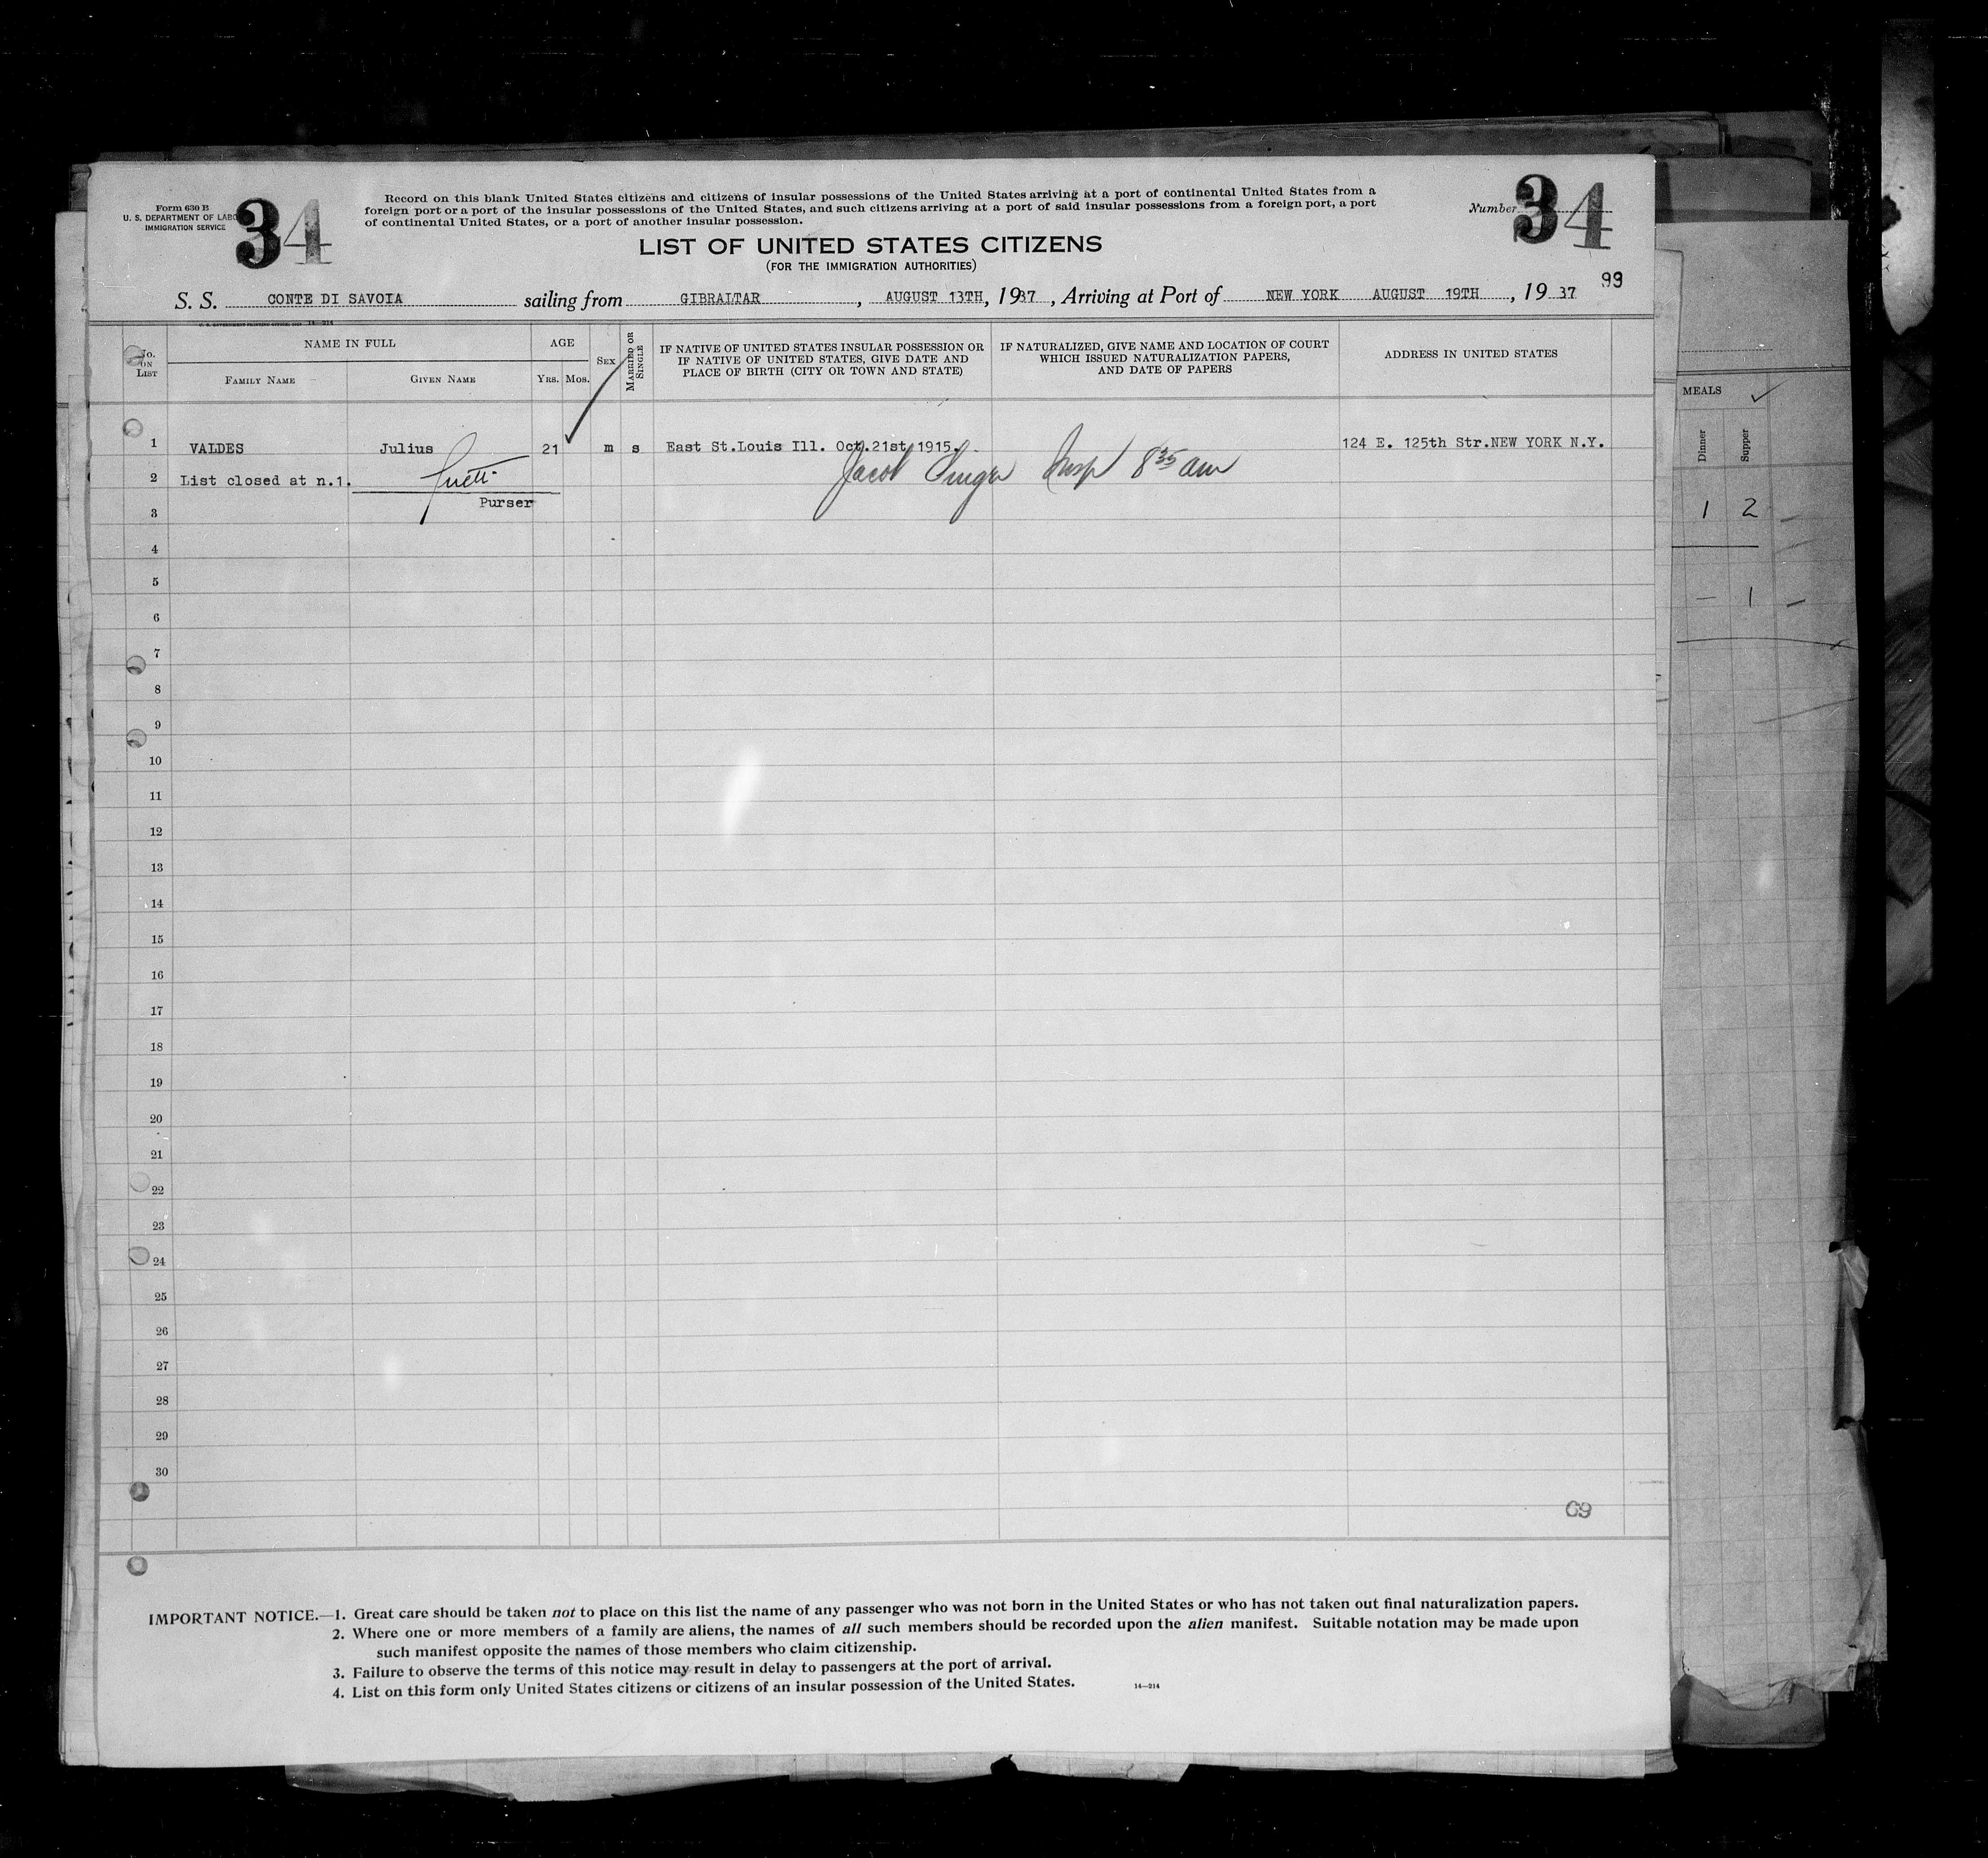 Form 630 B
U. S. DEPARTMENT OF LABO
IMMIGRATION SERVICE
34
Record on this blank United States citizens and citizens of insular possessions of the United States arriving at a port of continental United States from a
foreign port or a port of the insular possessions of the United States, and such citizens arriving at a port of said insular possessions from a foreign port, a port
of continental United States, or a port of another insular possession.
Number 34
LIST OF UNITED STATES CITIZENS
(FOR THE IMMIGRATION AUTHORITIES)
99
S. S. CONTE DI SAVOIA sailing from GIBRALTAR, AUGUST 13TH, 1937, Arriving at Port of NEW YORK AUGUST 19TH, 19 37
No. ON LIST
NAME IN FULL
FAMILY NAME
GIVEN NAME
AGE
YRS. MOS.
SEX
MARRIED OR SINGLE
IF NATIVE OF UNITED STATES INSULAR POSSESSION OR
IF NATIVE OF UNITED STATES, GIVE DATE AND
PLACE OF BIRTH (CITY OR TOWN AND STATE)
IF NATURALIZED, GIVE NAME AND LOCATION OF COURT
WHICH ISSUED NATURALIZATION PAPERS,
AND DATE OF PAPERS
ADDRESS IN UNITED STATES
1 VALDES Julius 21 m s East St.Louis Ill. Oct.21st 1915. 124 E. 125th Str.NEW YORK N.Y.
Jacob Insp 8 35 am
2 List closed at n.1.
Purser
3
4
5
6
7
8
9
10
11
12
13
14
15
16
17
18
19
20
21
22
23
24
25
26
27
28
29
30
69
IMPORTANT NOTICE.—1. Great care should be taken not to place on this list the name of any passenger who was not born in the United States or who has not taken out final naturalization papers.
2. Where one or more members of a family are aliens, the names of all such members should be recorded upon the alien manifest. Suitable notation may be made upon
such manifest opposite the names of those members who claim citizenship.
3. Failure to observe the terms of this notice may result in delay to passengers at the port of arrival.
4. List on this form only United States citizens or citizens of an insular possession of the United States.
14—214
MEALS
Dinner
Supper
1 2
1